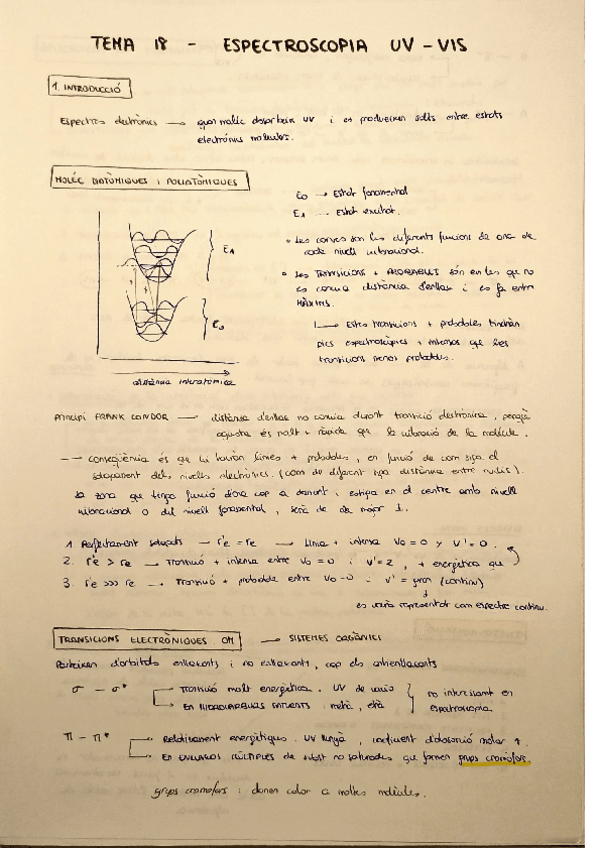 TEMA 18 - ESPECTROSCOPIA UV-VIS
1. INTRODUCCIÓ
Espectres electrònics → quan molèc absorbeix UV i es produeixen salts entre estats
electrònics moleculars.
MOLÈC DIATÒMIQUES i POLIATÒMIQUES
E0 → Estat fonamental
E1 → Estat excitat.
• Les corves són les diferents funcions de ona de
cada nivell vibracional.
• Les TRANSICIONS + PROBABLES són en les que no
es canvia distància d'enllaç i es fa entre
MÀXIMS.
Estes transicions + probables tindràn
pics espectroscòpics + intensos que les
transicions menys probables.
E1
E0
distància interatòmica
Principi FRANK CONDOR → distància d'enllaç no canvia durant transició electrònica, perquè
aquesta és molt + ràpida que la vibració de la molècula.
→ conseqüència és que hi hauràn línies + probables, en funció de com siga el
solapament dels nivells electrònics. (com de diferent siga distància entre nuclis).
La zona que tinga funció d'ona cap a damunt i estiga en el centre amb nivell
vibracional 0 del nivell fonamental, serà de major I.
1. Perfectament solapats → r'e = re → Línia + intensa V0 = 0 y V' = 0.
2. r'e > re → Transició + intensa entre V0 = 0 i V' = 2, + energètica que
3. r'e >>> re → Transició + probable entre V0 = 0 i V' = gran (continu)
es voria representat com espectre continu.
TRANSICIONS ELECTRÒNIQUES OM → SISTEMES ORGÀNICS
Parteixen d'orbitals enllaçants i no enllaçants, cap els antienllaçants
σ - σ* Transició molt energètica. UV de
EN HIDROCARBURS SATURATS: metà, età
no interessant en
espectroscopia
π - π* Relativament energètiques. UV llunyà, coeficient d'absorció molar ↑.
EN ENLLAÇOS MÚLTIPLES de subst no saturades que formen grups cromòfors.
grups cromòfors: donen color a moltes molècules.